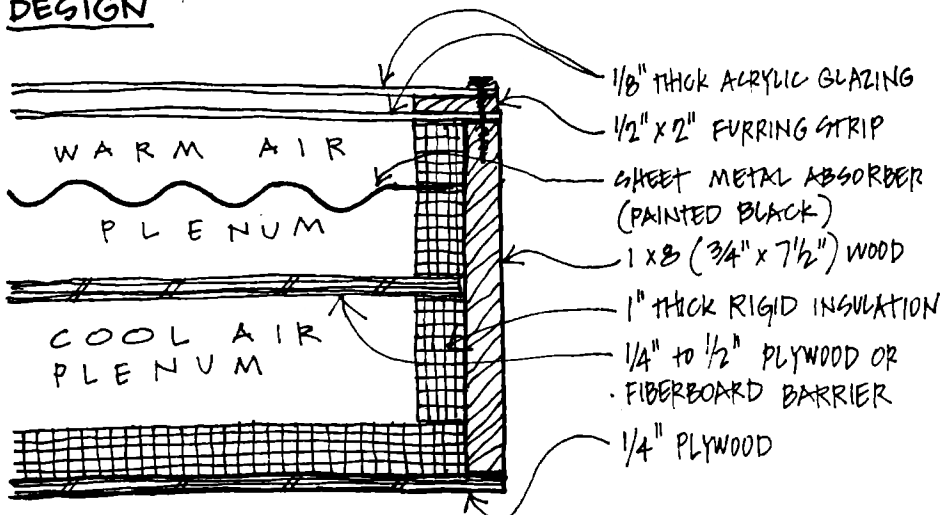 DESIGN
WARM AIR
PLENUM
COOL AIR
PLENUM
1/8" THICK ACRYLIC GLAZING
1/2" X 2" FURRING STRIP
SHEET METAL ABSORBER
(PAINTED BLACK)
1 X 8 (3/4" X 7 1/2") WOOD
1" THICK RIGID INSULATION
1/4" TO 1/2" PLYWOOD OR
FIBERBOARD BARRIER
1/4" PLYWOOD